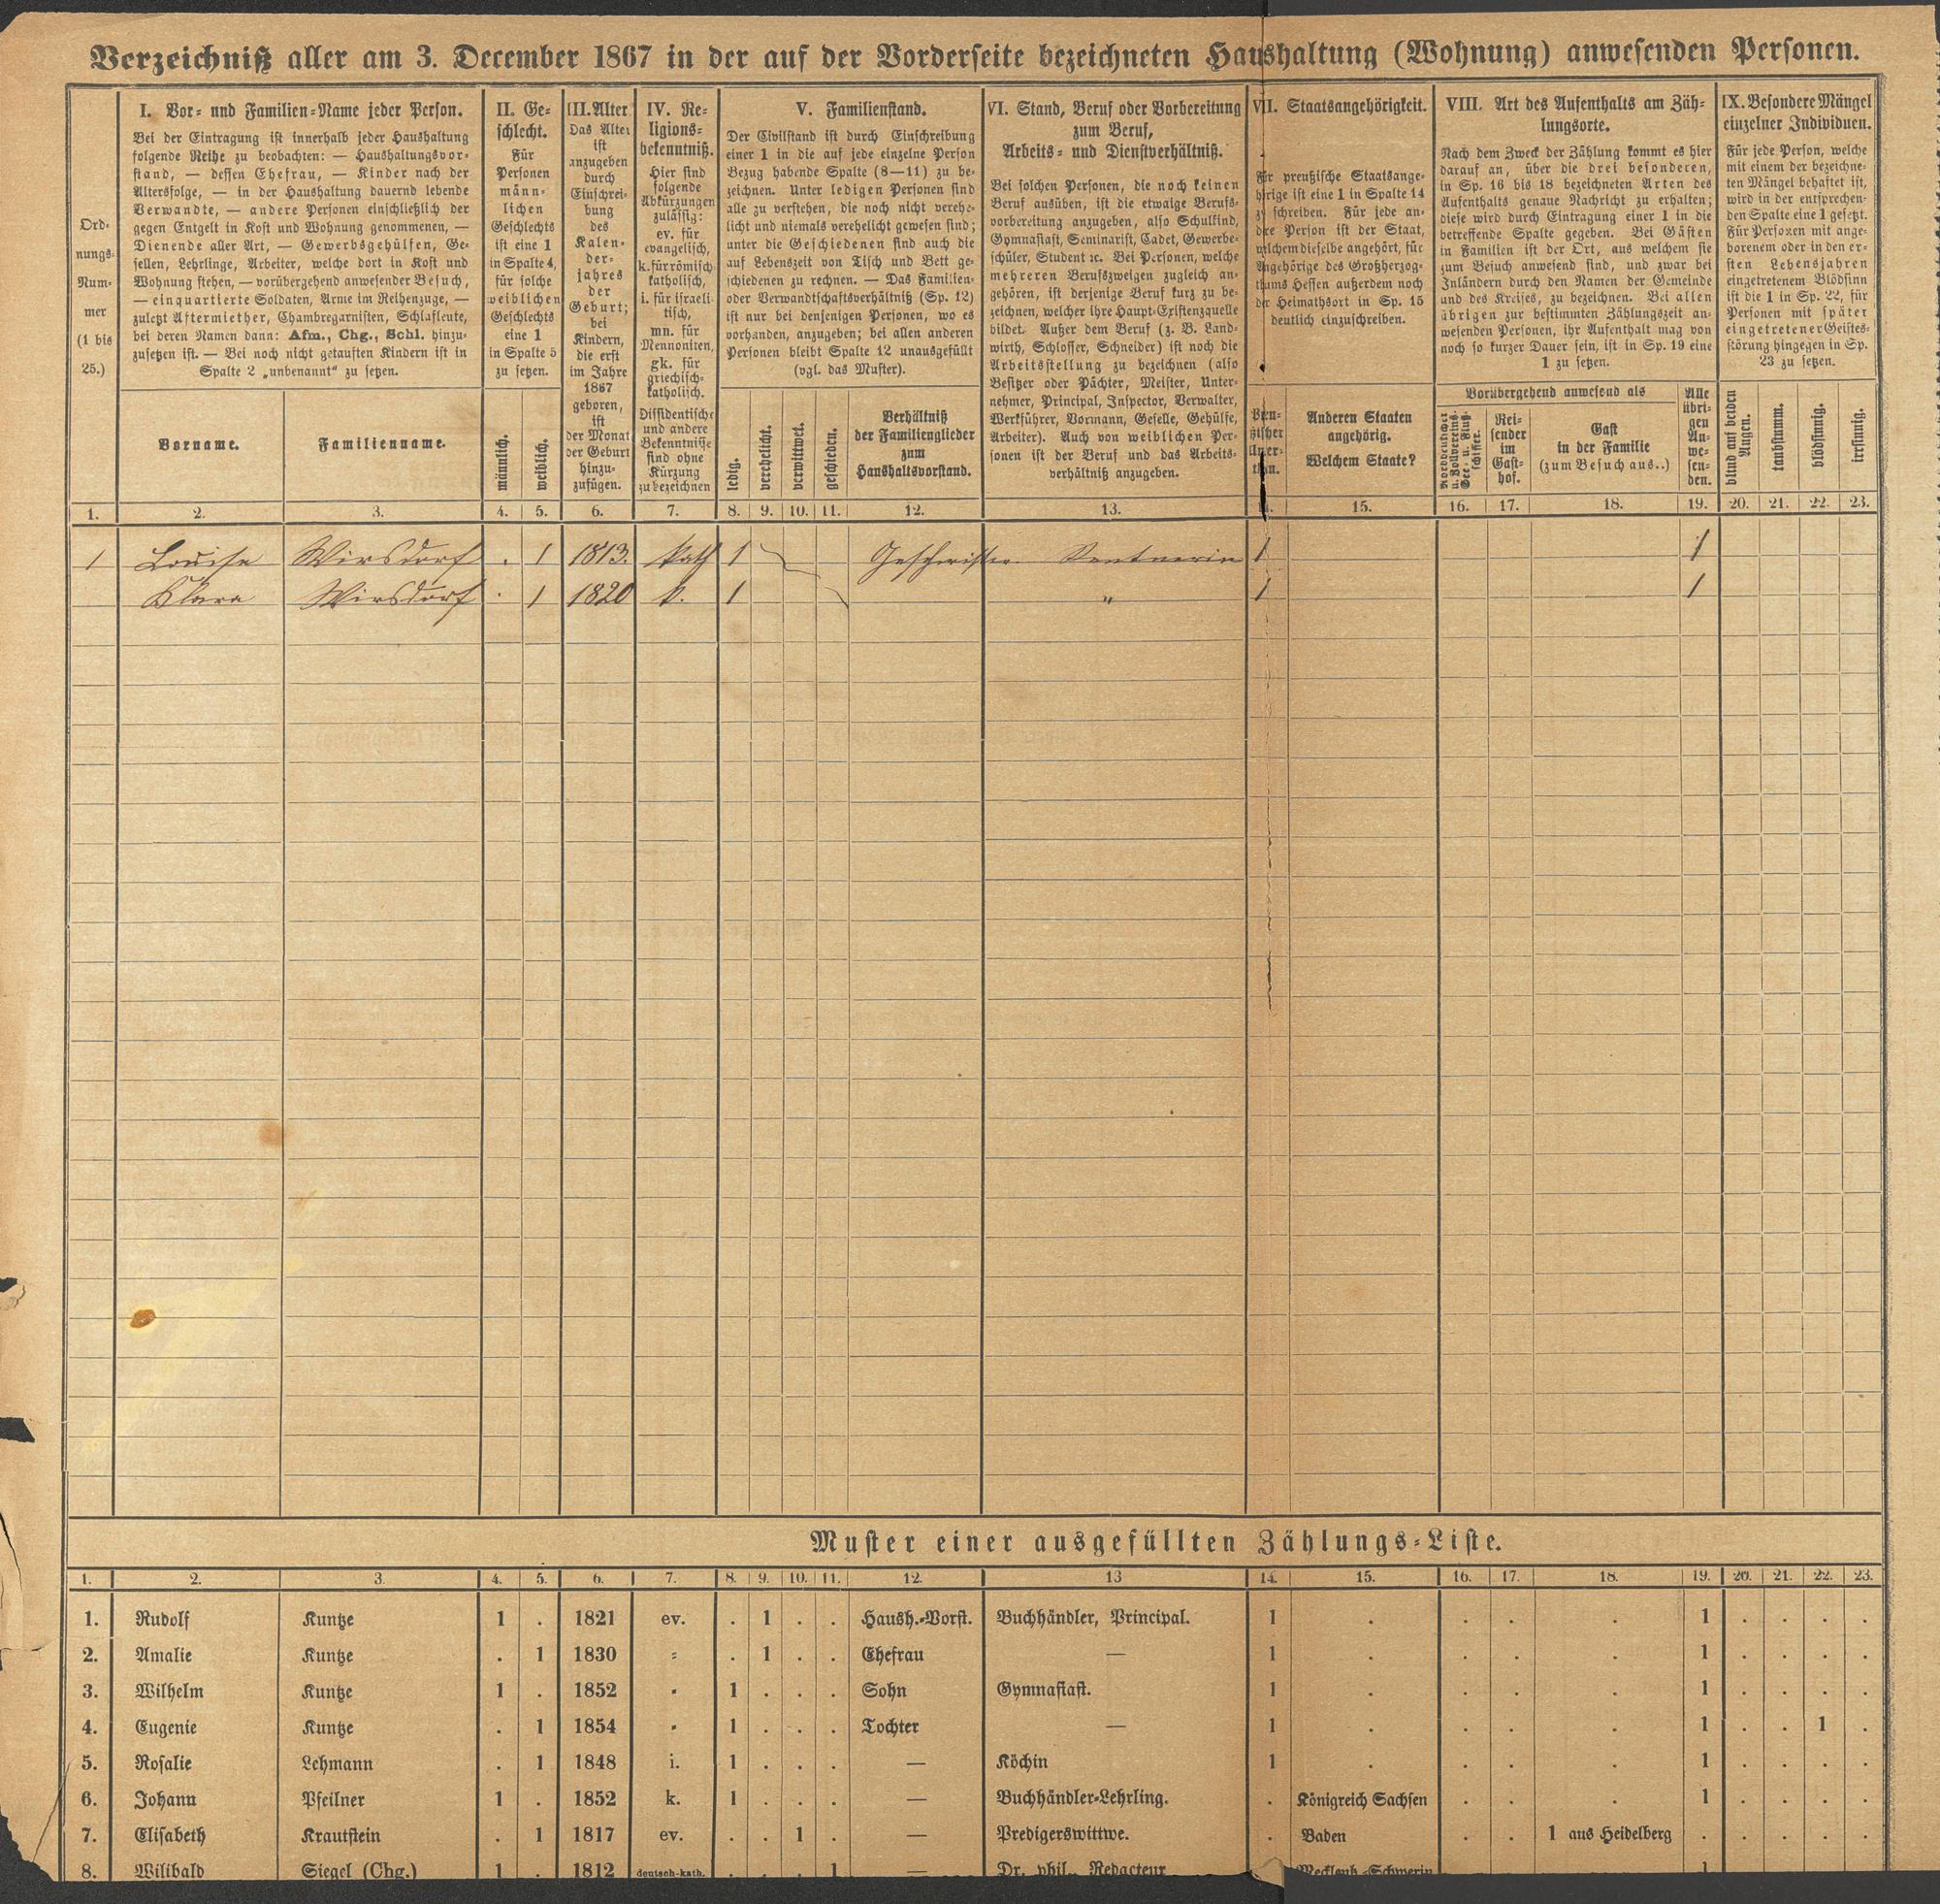 Verzeichniß aller am 3. December 1867 in der auf der Vorderseite bezeichneten Haushaltung (Wohnung) anwesenden Personen.
Ord-
nungs-
Num-
mer
(1 bis
25.)
I. Vor- und Familien-Name jeder Person.
Bei der Eintragung ist innerhalb jeder Haushaltung
folgende Reihe zu beobachten: — Haushaltungsvor-
stand, — dessen Ehefrau, — Kinder nach der
Altersfolge, — in der Haushaltung dauernd lebende
Verwandte, — andere Personen einschließlich der
gegen Entgelt in Kost und Wohnung genommenen, —
Dienende aller Art, — Gewerbsgehülfen, Ge-
sellen, Lehrlinge, Arbeiter, welche dort in Kost und
Wohnung stehen, — vorübergehend anwesender Besuch,
— einquartierte Soldaten, Arme im Reihenzuge, —
zuletzt Aftermiether, Chambregarnisten, Schlafleute,
bei deren Namen dann: Afm., Chg., Schl. hinzu-
zusetzen ist. — Bei noch nicht getauften Kindern ist in
Spalte 2 „unbenannt“ zu setzen.
Vorname.
Familienname.
II. Ge-
schlecht.
Für
Personen
männ-
lichen
Geschlechts
ist eine 1
in Spalte 4,
für solche
weiblichen
Geschlechts
eine 1
in Spalte 5
zu setzen.
männlich.
weiblich.
III. Alter
Das Alter
ist
anzugeben
durch
Einschrei-
bung
des
Kalen-
der-
jahres
der
Geburt;
bei
Kindern,
die erst
im Jahre
1867
geboren,
ist
der Monat
der Geburt
hinzu-
zufügen.
IV. Re-
ligions-
bekenntniß.
Hier sind
folgende
Abkürzungen
zulässig:
ev. für
evangelisch,
k. für römisch-
katholisch,
i. für israeli-
tisch,
mn. für
Mennoniten,
gk. für
griechisch-
katholisch.
Dissidentische
und andere
Bekenntnisse
sind ohne
Kürzung
zu bezeichnen
V. Familienstand.
Der Civilstand ist durch Einschreibung
einer 1 in die auf jede einzelne Person
Bezug habende Spalte (8—11) zu be-
zeichnen. Unter ledigen Personen sind
alle zu verstehen, die noch nicht verehe-
licht und niemals verehelicht gewesen sind;
unter die Geschiedenen sind auch die
auf Lebenszeit von Tisch und Bett ge-
schiedenen zu rechnen. — Das Familien-
oder Verwandtschaftsverhältniß (Sp. 12)
ist nur bei denjenigen Personen, wo es
vorhanden, anzugeben; bei allen anderen
Personen bleibt Spalte 12 unausgefüllt
(vgl. das Muster).
ledig.
verehelicht.
verwittwet.
geschieden.
Verhältniß
der Familienglieder
zum
Haushaltsvorstand.
VI. Stand, Beruf oder Vorbereitung
zum Beruf,
Arbeits- und Dienstverhältniß.
Bei solchen Personen, die noch keinen
Beruf ausüben, ist die etwaige Berufs-
vorbereitung anzugeben, also Schulkind,
Gymnasiast, Seminarist, Cadet, Gewerbe-
schüler, Student ꝛc. Bei Personen, welche
mehreren Berufszweigen zugleich an-
gehören, ist derjenige Beruf kurz zu be-
zeichnen, welcher ihre Haupt-Existenzquelle
bildet. Außer dem Beruf (z. B. Land-
wirth, Schlosser, Schneider) ist noch die
Arbeitsstellung zu bezeichnen (also
Besitzer oder Pächter, Meister, Unter-
nehmer, Principal, Inspector, Verwalter,
Werkführer, Vormann, Geselle, Gehülfe,
Arbeiter). Auch von weiblichen Per-
sonen ist der Beruf und das Arbeits-
verhältniß anzugeben.
VII. Staatsangehörigkeit.
Für preußische Staatsange-
hörige ist eine 1 in Spalte 14
zu schreiben. Für jede an-
dere Person ist der Staat,
welchem dieselbe angehört, für
Angehörige des Großherzog-
thums Hessen außerdem noch
der Heimathsort in Sp. 15
deutlich einzuschreiben.
Anderen Staaten
angehörig.
Welchem Staate?
VIII. Art des Aufenthalts am Zäh-
lungsorte.
Nach dem Zweck der Zählung kommt es hier
darauf an, über die drei besonderen,
in Sp. 16 bis 18 bezeichneten Arten des
Aufenthalts genaue Nachricht zu erhalten;
diese wird durch Eintragung einer 1 in die
betreffende Spalte gegeben. Bei Gästen
in Familien ist der Ort, aus welchem sie
zum Besuch anwesend sind, und zwar bei
Inländern durch den Namen der Gemeinde
und des Kreises, zu bezeichnen. Bei allen
übrigen zur bestimmten Zählungszeit an-
wesenden Personen, ihr Aufenthalt mag von
noch so kurzer Dauer sein, ist in Sp. 19 eine
1 zu setzen.
Vorübergehend anwesend als
Norddeutscher
u. Zollvereins-
See- u. Fluß-
schiffer.
Rei-
sender
im
Gast-
hof.
Gast
in der Familie
(zum Besuch aus..)
Alle
übri-
gen
An-
we-
sen-
den.
IX. Besondere Mängel
einzelner Individuen.
Für jede Person, welche
mit einem der bezeichne-
ten Mängel behaftet ist,
wird in der entsprechen-
den Spalte eine 1 gesetzt.
Für Personen mit ange-
borenem oder in den er-
sten Lebensjahren
eingetretenem Blödsinn
ist die 1 in Sp. 22, für
Personen mit später
eingetretener Geistes-
störung hingegen in Sp.
23 zu setzen.
blind auf beiden
Augen.
taubstumm.
blödsinnig.
irrsinnig.
1. 2. 3. 4. 5. 6. 7. 8. 9. 10. 11. 12. 13. 15. 16. 17. 18. 19. 20. 21. 22. 23.
1 Louise Wirsdorf . 1 1813. kath 1 Geschwister Rentnerin 1 1
Klara Wirsdorf . 1 1820 k. 1 " 1 1
Muster einer ausgefüllten Zählungs-Liste.
1. 2. 3. 4. 5. 6. 7. 8. 9. 10. 11. 12. 13 14. 15. 16. 17. 18. 19. 20. 21. 22. 23.
1. Rudolf Kuntze 1 . 1821 ev. . 1 . . Haush.-Vorst. Buchhändler, Principal. 1 . . . . 1 . . . .
2. Amalie Kuntze . 1 1830 „ . 1 . . Ehefrau — 1 . . . . 1 . . . .
3. Wilhelm Kuntze 1 . 1852 „ 1 . . . Sohn Gymnasiast. 1 . . . . 1 . . . .
4. Eugenie Kuntze . 1 1854 „ 1 . . . Tochter — 1 . . . . 1 . . 1 .
5. Rosalie Lehmann . 1 1848 i. 1 . . . — Köchin 1 . . . . 1 . . . .
6. Johann Pfeilner 1 . 1852 k. 1 . . . — Buchhändler-Lehrling. . Königreich Sachsen . . . 1 . . . .
7. Elisabeth Krautstein . 1 1817 ev. . . 1 . — Predigerswittwe. . Baden . . 1 aus Heidelberg . . . . .
8. Wilibald Siegel (Chg.) 1 . 1812 deutsch-kath. . . . 1 — Dr. phil., Redacteur . Mecklenb.-Schwerin . . . 1 . . . .